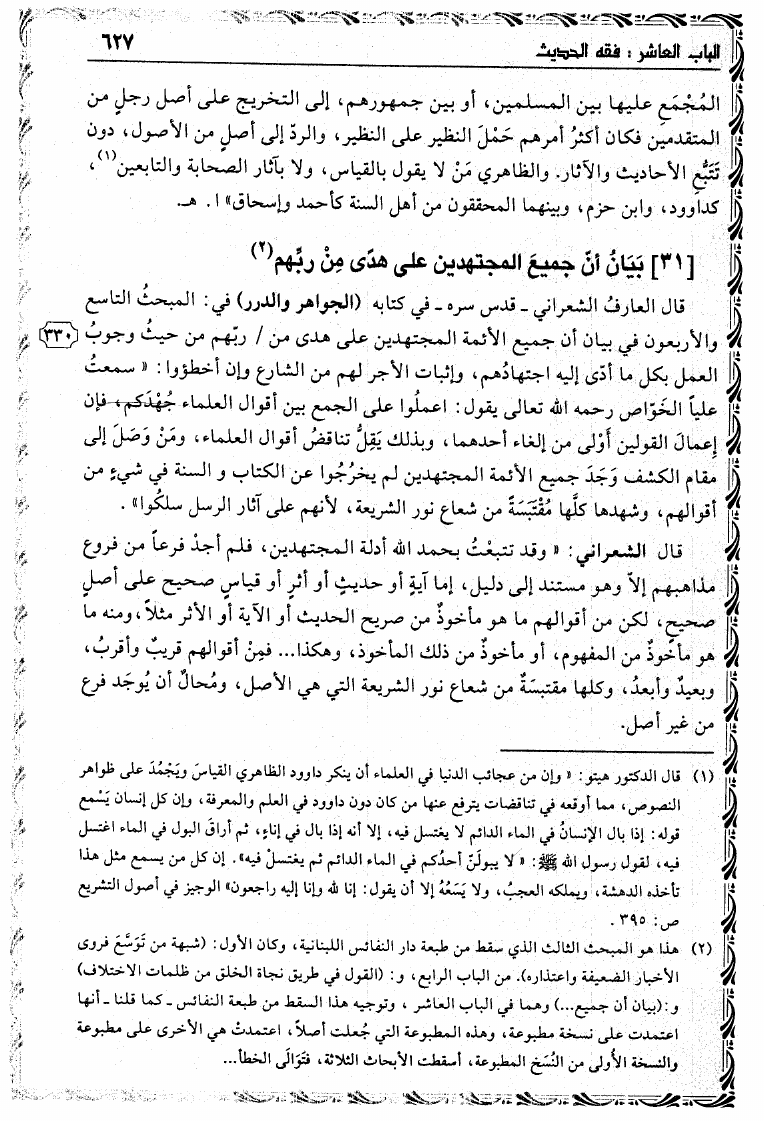 الباب العاشر : فقه الحديث ٦٢٧
المُجْمَعِ عليها بين المسلمين، أو بين جمهورهم، إلى التخريج على أصل رجلٍ من
المتقدمين فكان أكثرُ أمرهم حَمْلَ النظير على النظير، والردّ إلى أصلٍ من الأصول، دون
تَتَبُّعِ الأحاديث والآثار. والظاهري مَنْ لا يقول بالقياس، ولا بآثار الصحابة والتابعين(١)،
كداوود، وابن حزم، وبينهما المحققون من أهل السنة كأحمد وإسحاق» ا. هـ.
[٣١] بَيَانُ أنّ جميعَ المجتهدين على هدًى مِنْ ربِّهم(٢)
قال العارفُ الشعراني ـ قدس سره ـ في كتابه (الجواهر والدرر) في: المبحثُ التاسع
والأربعون في بيان أن جميع الأئمة المجتهدين على هدى من / ربّهم من حيثُ وجوبُ ٣٣٠
العمل بكل ما أدّى إليه اجتهادُهم، وإثبات الأجر لهم من الشارع وإن أخطؤوا: « سمعتُ
علياً الخَوّاص رحمه الله تعالى يقول: اعملُوا على الجمع بين أقوال العلماء جُهْدَكم، فإن
إعمالَ القولين أَوْلى من إلغاء أحدهما، وبذلك يَقِلُّ تناقضُ أقوال العلماء، ومَنْ وَصَلَ إلى
مقام الكشف وَجَدَ جميع الأئمة المجتهدين لم يخرُجُوا عن الكتاب و السنة في شيءٍ من
أقوالهم، وشهدها كلَّها مُقْتَبَسَةً من شعاع نور الشريعة، لأنهم على آثار الرسل سلكُوا» .
قال الشعراني: « وقد تتبعْتُ بحمد الله أدلة المجتهدين، فلم أجدْ فرعاً من فروع
مذاهبهم إلاّ وهو مستند إلى دليل، إما آيةٍ أو حديثٍ أو أثرٍ أو قياسٍ صحيح على أصلٍ
صحيحٍ، لكن من أقوالهم ما هو مأخوذٌ من صريح الحديث أو الآية أو الأثر مثلاً، ومنه ما
هو مأخوذٌ من المفهوم، أو مأخوذٌ من ذلك المأخوذ، وهكذا... فمِنْ أقوالهم قريبٌ وأقربُ،
وبعيدٌ وأبعدُ، وكلها مقتبسَةٌ من شعاع نور الشريعة التي هي الأصل، ومُحالٌ أن يُوجَد فرع
من غير أصل.
(١) قال الدكتور هيتو: « وإن من عجائب الدنيا في العلماء أن ينكر داوود الظاهري القياسَ ويَجْمُدَ على ظواهر
النصوص، مما أوقعه في تناقضات يترفع عنها من كان دون داوود في العلم والمعرفة، وإن كل إنسان يَسْمع
قوله: إذا بال الإنسانُ في الماء الدائم لا يغتسل فيه، إلا أنه إذا بال في إناءٍ، ثم أراقَ البول في الماء اغتسل
فيه، لقول رسول الله ﷺ: « لا يبولَنّ أحدُكم في الماء الدائم ثم يغتسلْ فيه». إن كل من يسمع مثل هذا
تأخذه الدهشة، ويملكه العجبُ، ولا يَسَعُهُ إلا أن يقول: إنا لله وإنا إليه راجعون» الوجيز في أصول التشريع
ص: ٣٩٥ .
(٢) هذا هو المبحث الثالث الذي سقط من طبعة دار النفائس اللبنانية، وكان الأول: (شبهة من تَوَسَّعَ فروى
الأخبار الضعيفة واعتذاره). من الباب الرابع، و: (القول في طريق نجاة الخلق من ظلمات الاختلاف)
و:(بيان أن جميع...) وهما في الباب العاشر ، وتوجيه هذا السقط من طبعة النفائس ـ كما قلنا ـ أنها
اعتمدت على نسخة مطبوعة، وهذه المطبوعة التي جُعلت أصلاً، اعتمدتْ هي الأخرى على مطبوعة
والنسخة الأُولى من النُسَخ المطبوعة، أسقطت الأبحاث الثلاثة، فتَوَالَى الخطأ...